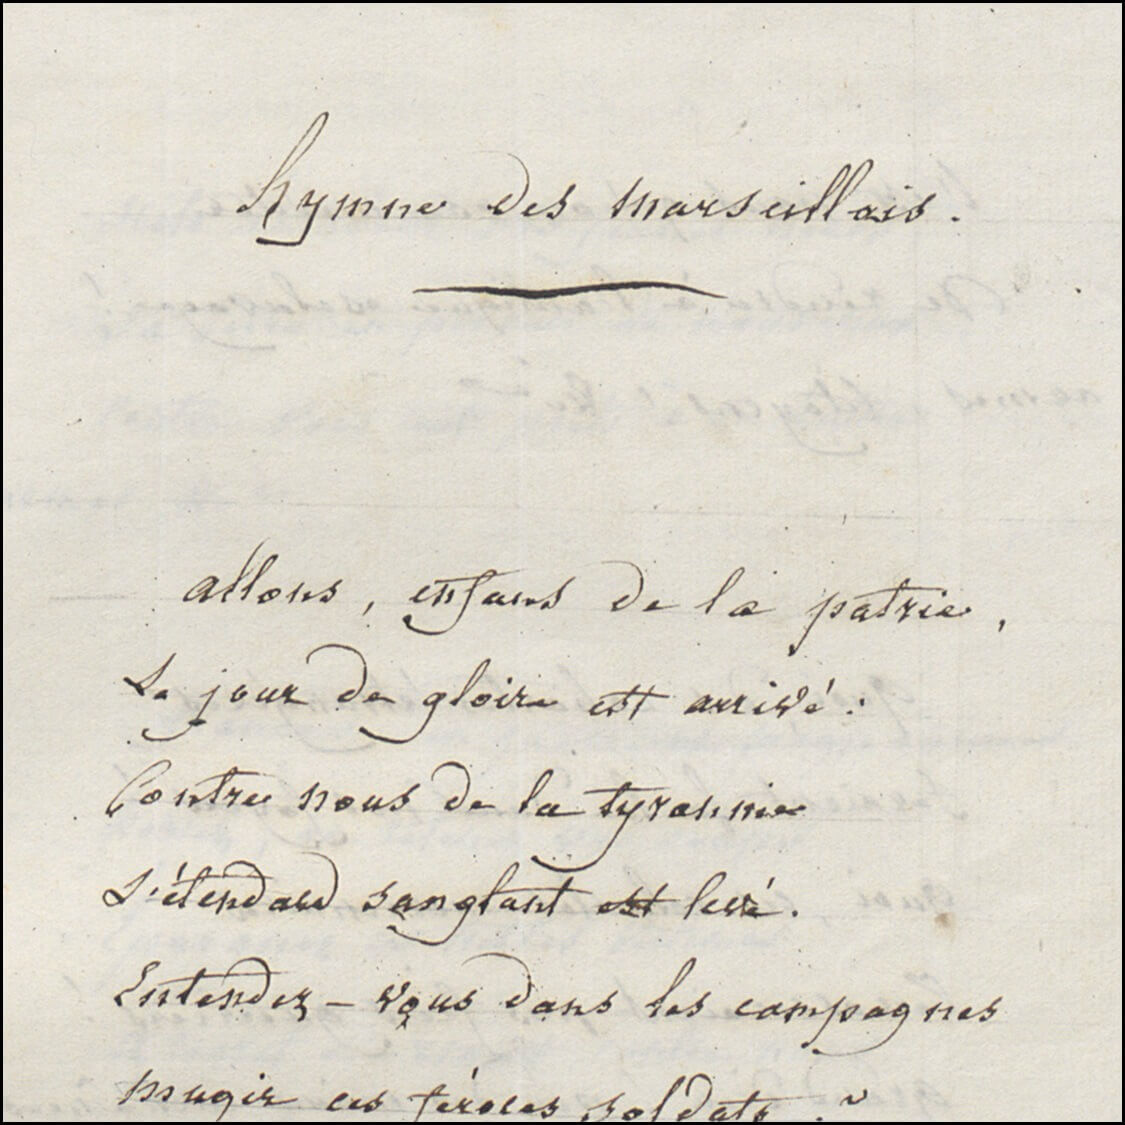 hymne des marseillais.
allons, enfans de la patrie,
Le jour de gloire est arrivé:
Contre nous de la tyrannie
L'étendard sanglant est levé.
Entendez-vous dans les campagnes
mugir ces féroces soldats?